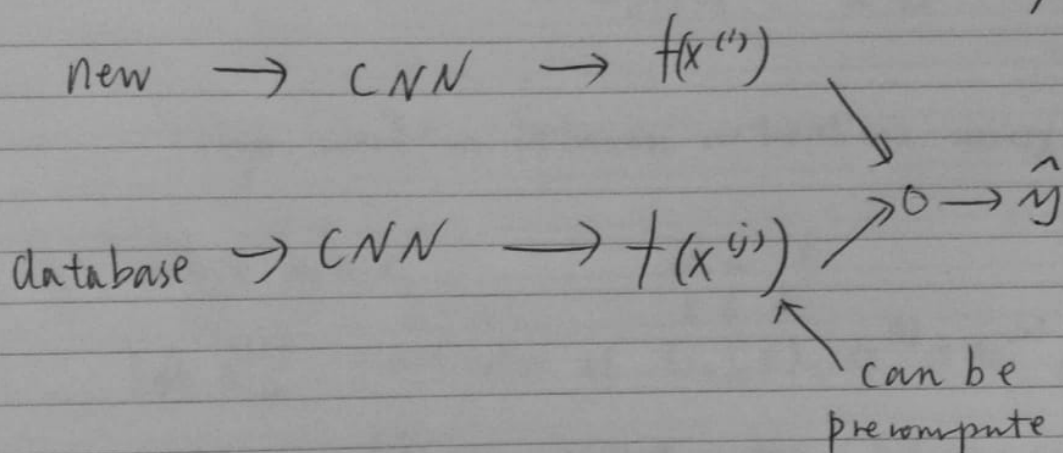 new → CNN → f(x⁽ⁱ⁾)
database → CNN → f(x⁽ʲ⁾)
o → ŷ
can be
precompute